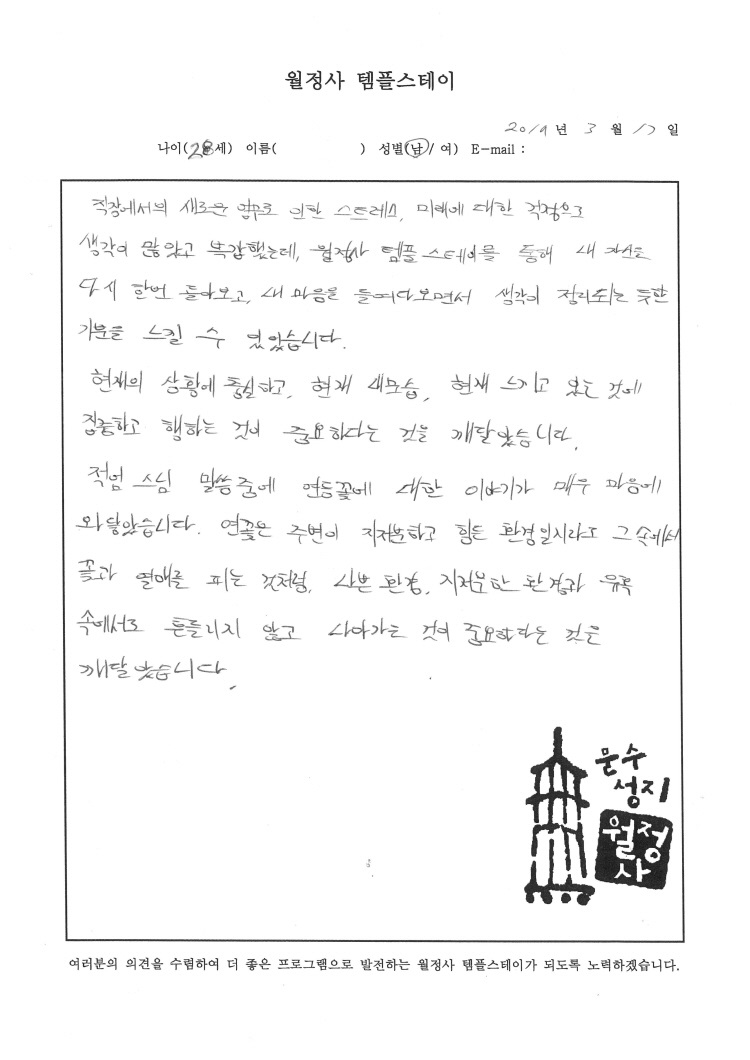 월정사 템플스테이
2019년 3월 17일
나이(28세) 이름( ) 성별(남/여) E-mail :
직장에서의 새로운 업무로 인한 스트레스, 미래에 대한 걱정으로
생각이 많았고 복잡했는데, 월정사 템플스테이를 통해 내 자신을
다시 한번 돌아보고, 내 마음을 들여다보면서 생각이 정리되는 듯한
기분을 느낄 수 있었습니다.
현재의 상황에 충실하고, 현재 내모습, 현재 느끼고 있는 것에
집중하고 행하는 것이 중요하다는 것을 깨달았습니다.
적엄 스님 말씀 중에 연등꽃에 대한 이야기가 매우 마음에
와닿았습니다. 연꽃은 주변이 지저분하고 힘든 환경일지라도 그 속에서
꽃과 열매를 피는 것처럼, 나쁜 환경, 지저분한 환경과 유혹
속에서도 흔들리지 않고 나아가는 것이 중요하다는 것을
깨달았습니다.
문수
성지
월정
사
여러분의 의견을 수렴하여 더 좋은 프로그램으로 발전하는 월정사 템플스테이가 되도록 노력하겠습니다.